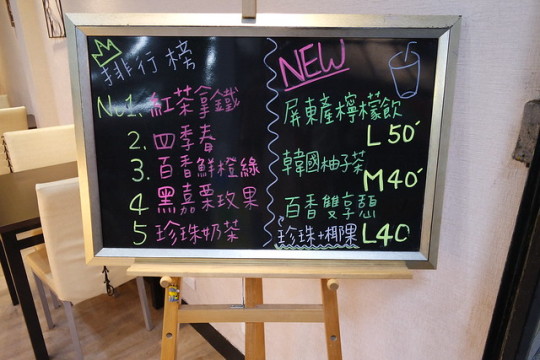 排行榜
No1.紅茶拿鐵
2.四季春
3.百香鮮橙綠
4 黑嘉莱玫果
5 珍珠奶茶
NEW
屏東產檸檬飲
L50
韓國柚子茶
M40
百香雙享憩
珍珠+椰果 L40